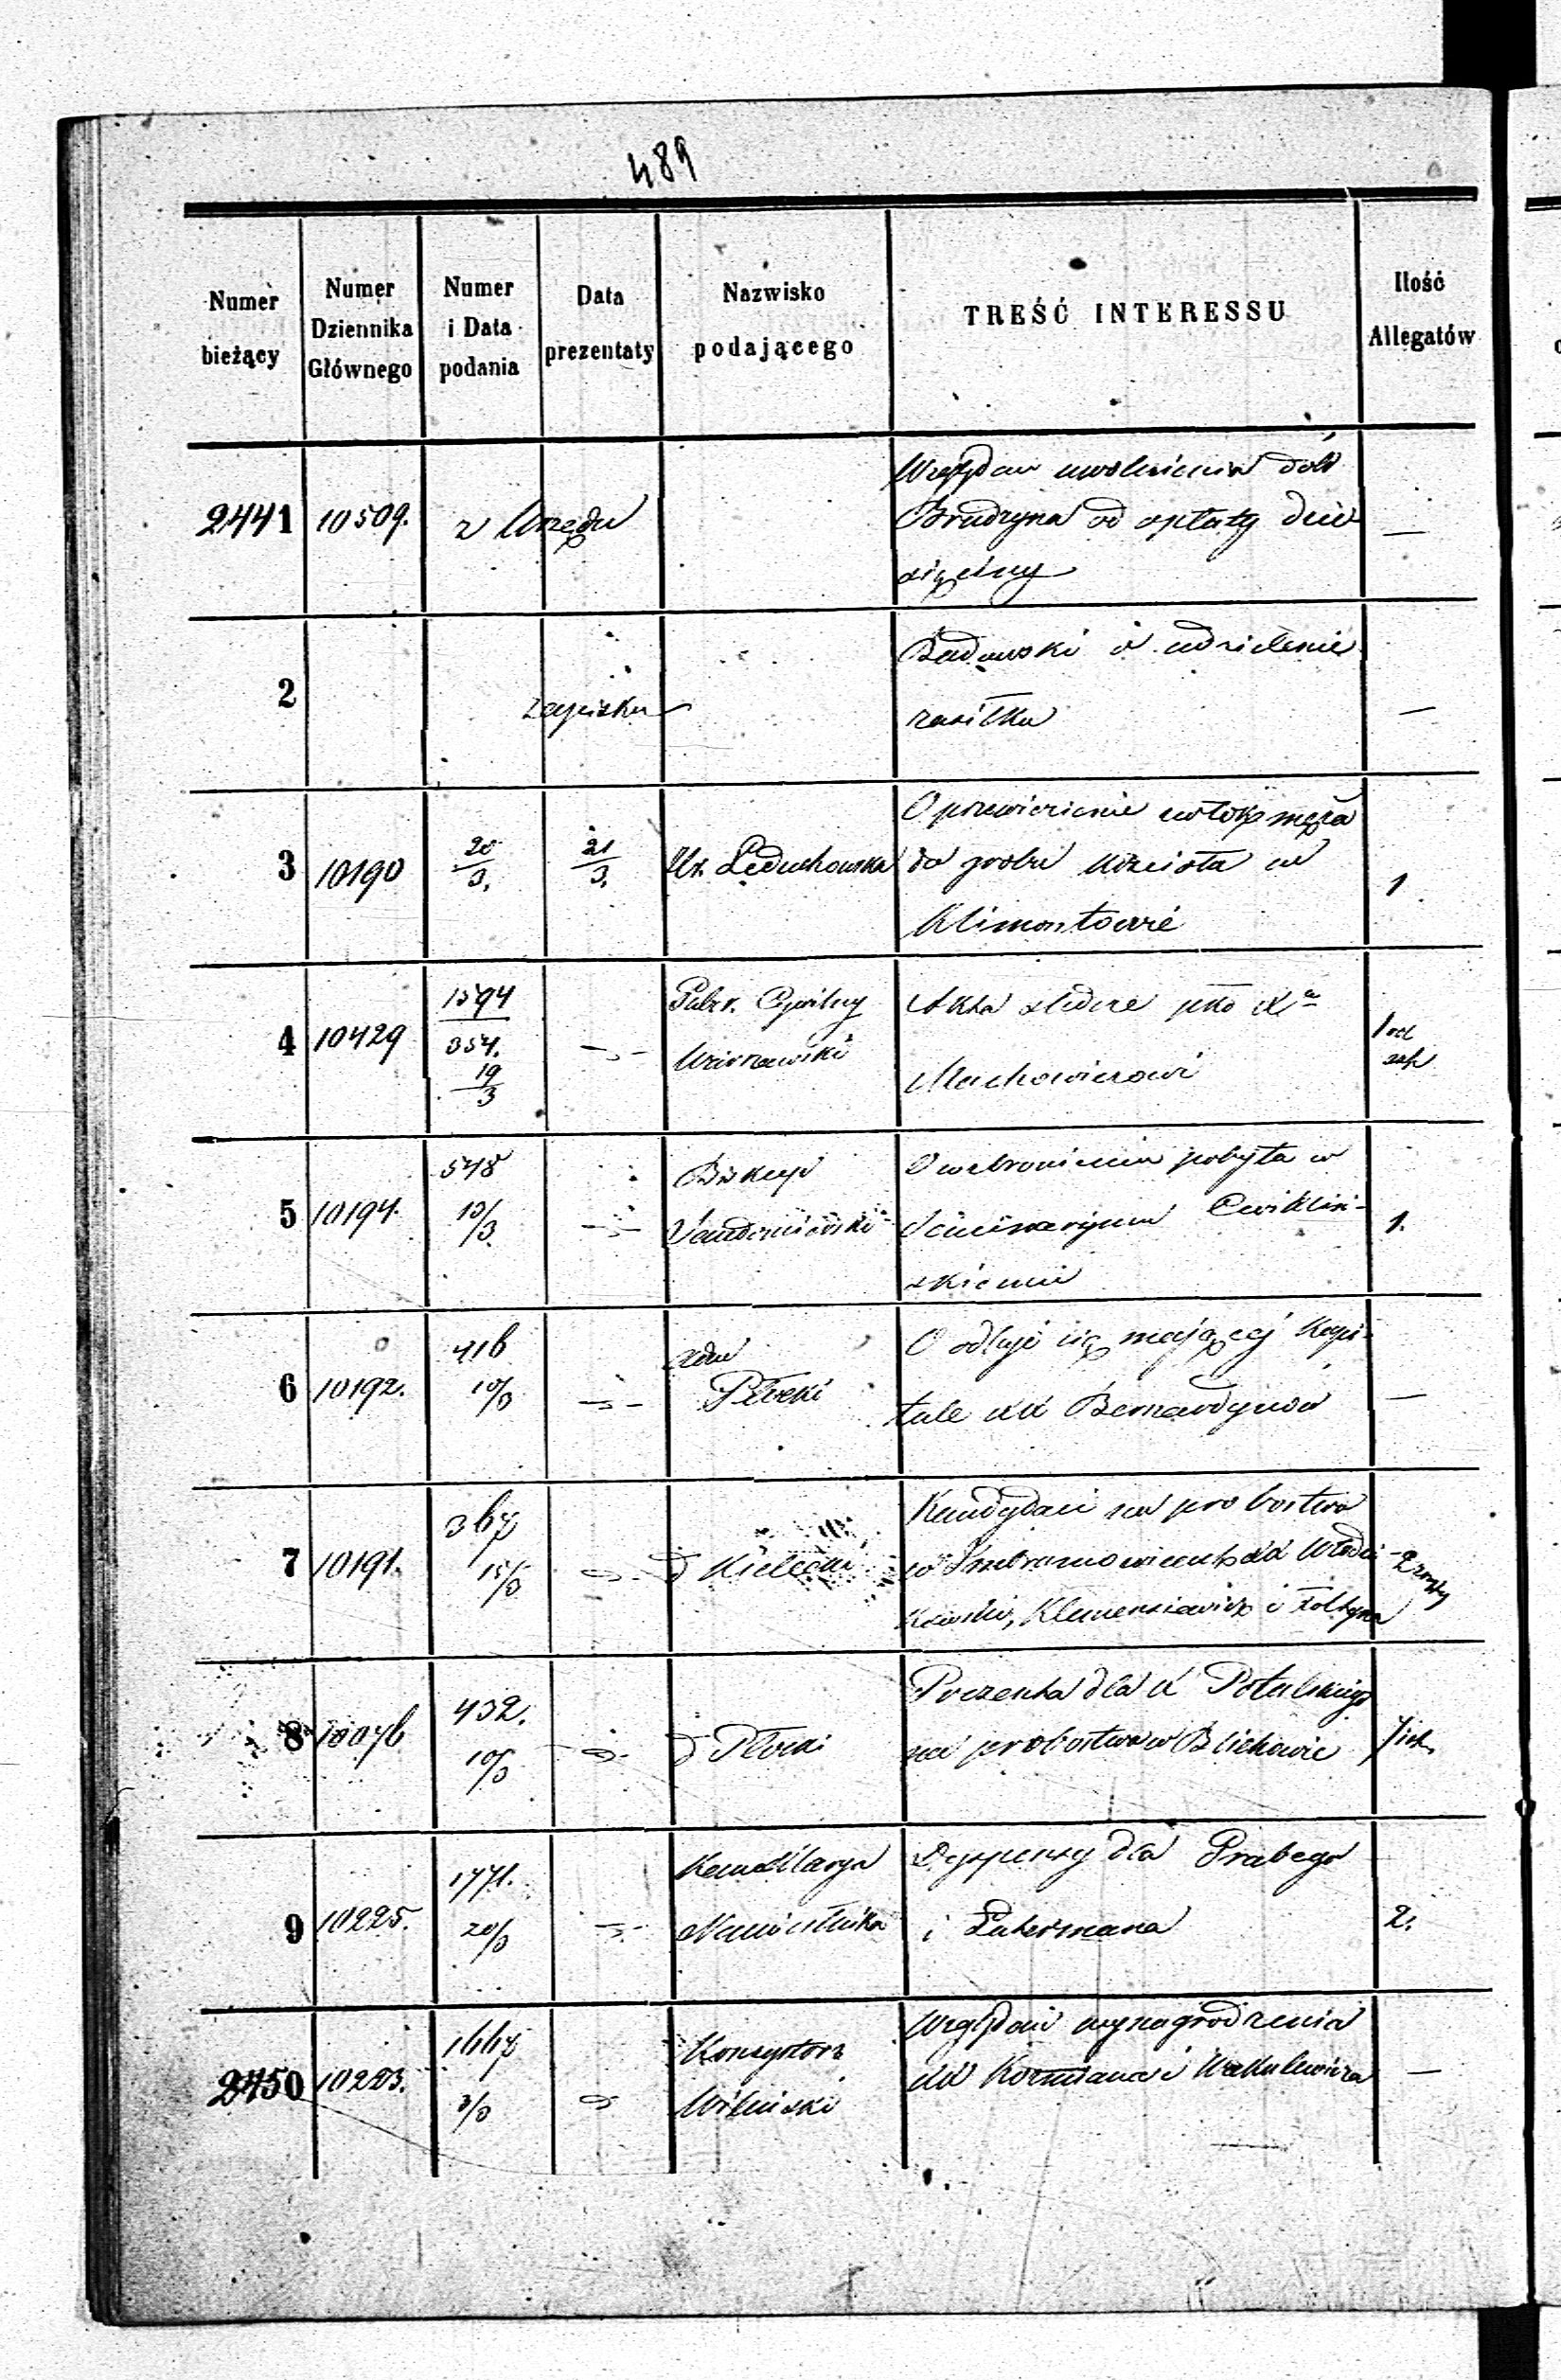 489
Numer bieżący
Numer Dziennika Głównego
Numer i Data podania
Data prezentaty
Nazwisko podającego
TREŚĆ INTERESSU
Ilość Allegatów
2441 10509. z Urzędu
Względem uwolnienia dóbr
Brudzyna od opłaty dzie
sięciny —
2 Zapiska
Badowski o udzielenie
zasiłku —
3 10190 20/3. 21/3. Hr. Leduchowska
O przewiezienie zwłok męża
do grobu kościoła w
Klimontowie
1
4 10429 1594 354. 19/3
Gubr. Cywilny
Warszawski
Akta śledcze pko Xa
Machowiczowi
1 od
5 10194. 548 13/3
Biskup
Sandomierski
O wzbronieniu pobytu w
Seminaryum Cwikliń-
skiemu
1.
6 10192. 416 10/3
Adm
Płocki
O odbyć się mającej Kapi-
tule XX Bernardynów —
7 10191. 367 15/3
d Kielecki
Kandydaci na probostwo
w Imbramowicach XX
Klemensiewicz i
8 10076 432. 10/3
d Płocki
Prezenta dla X
na probostwo w Blichowie
9 10225. 1771. 20/3
Kancellarya
Namiestnika
Dyspensy dla Grabego
i Lukermana
2.
2450 10203. 1667 3/3
Konsystorz
Wileński
Względem wynagrodzenia
XX Kozmiana i Wakulewicza —